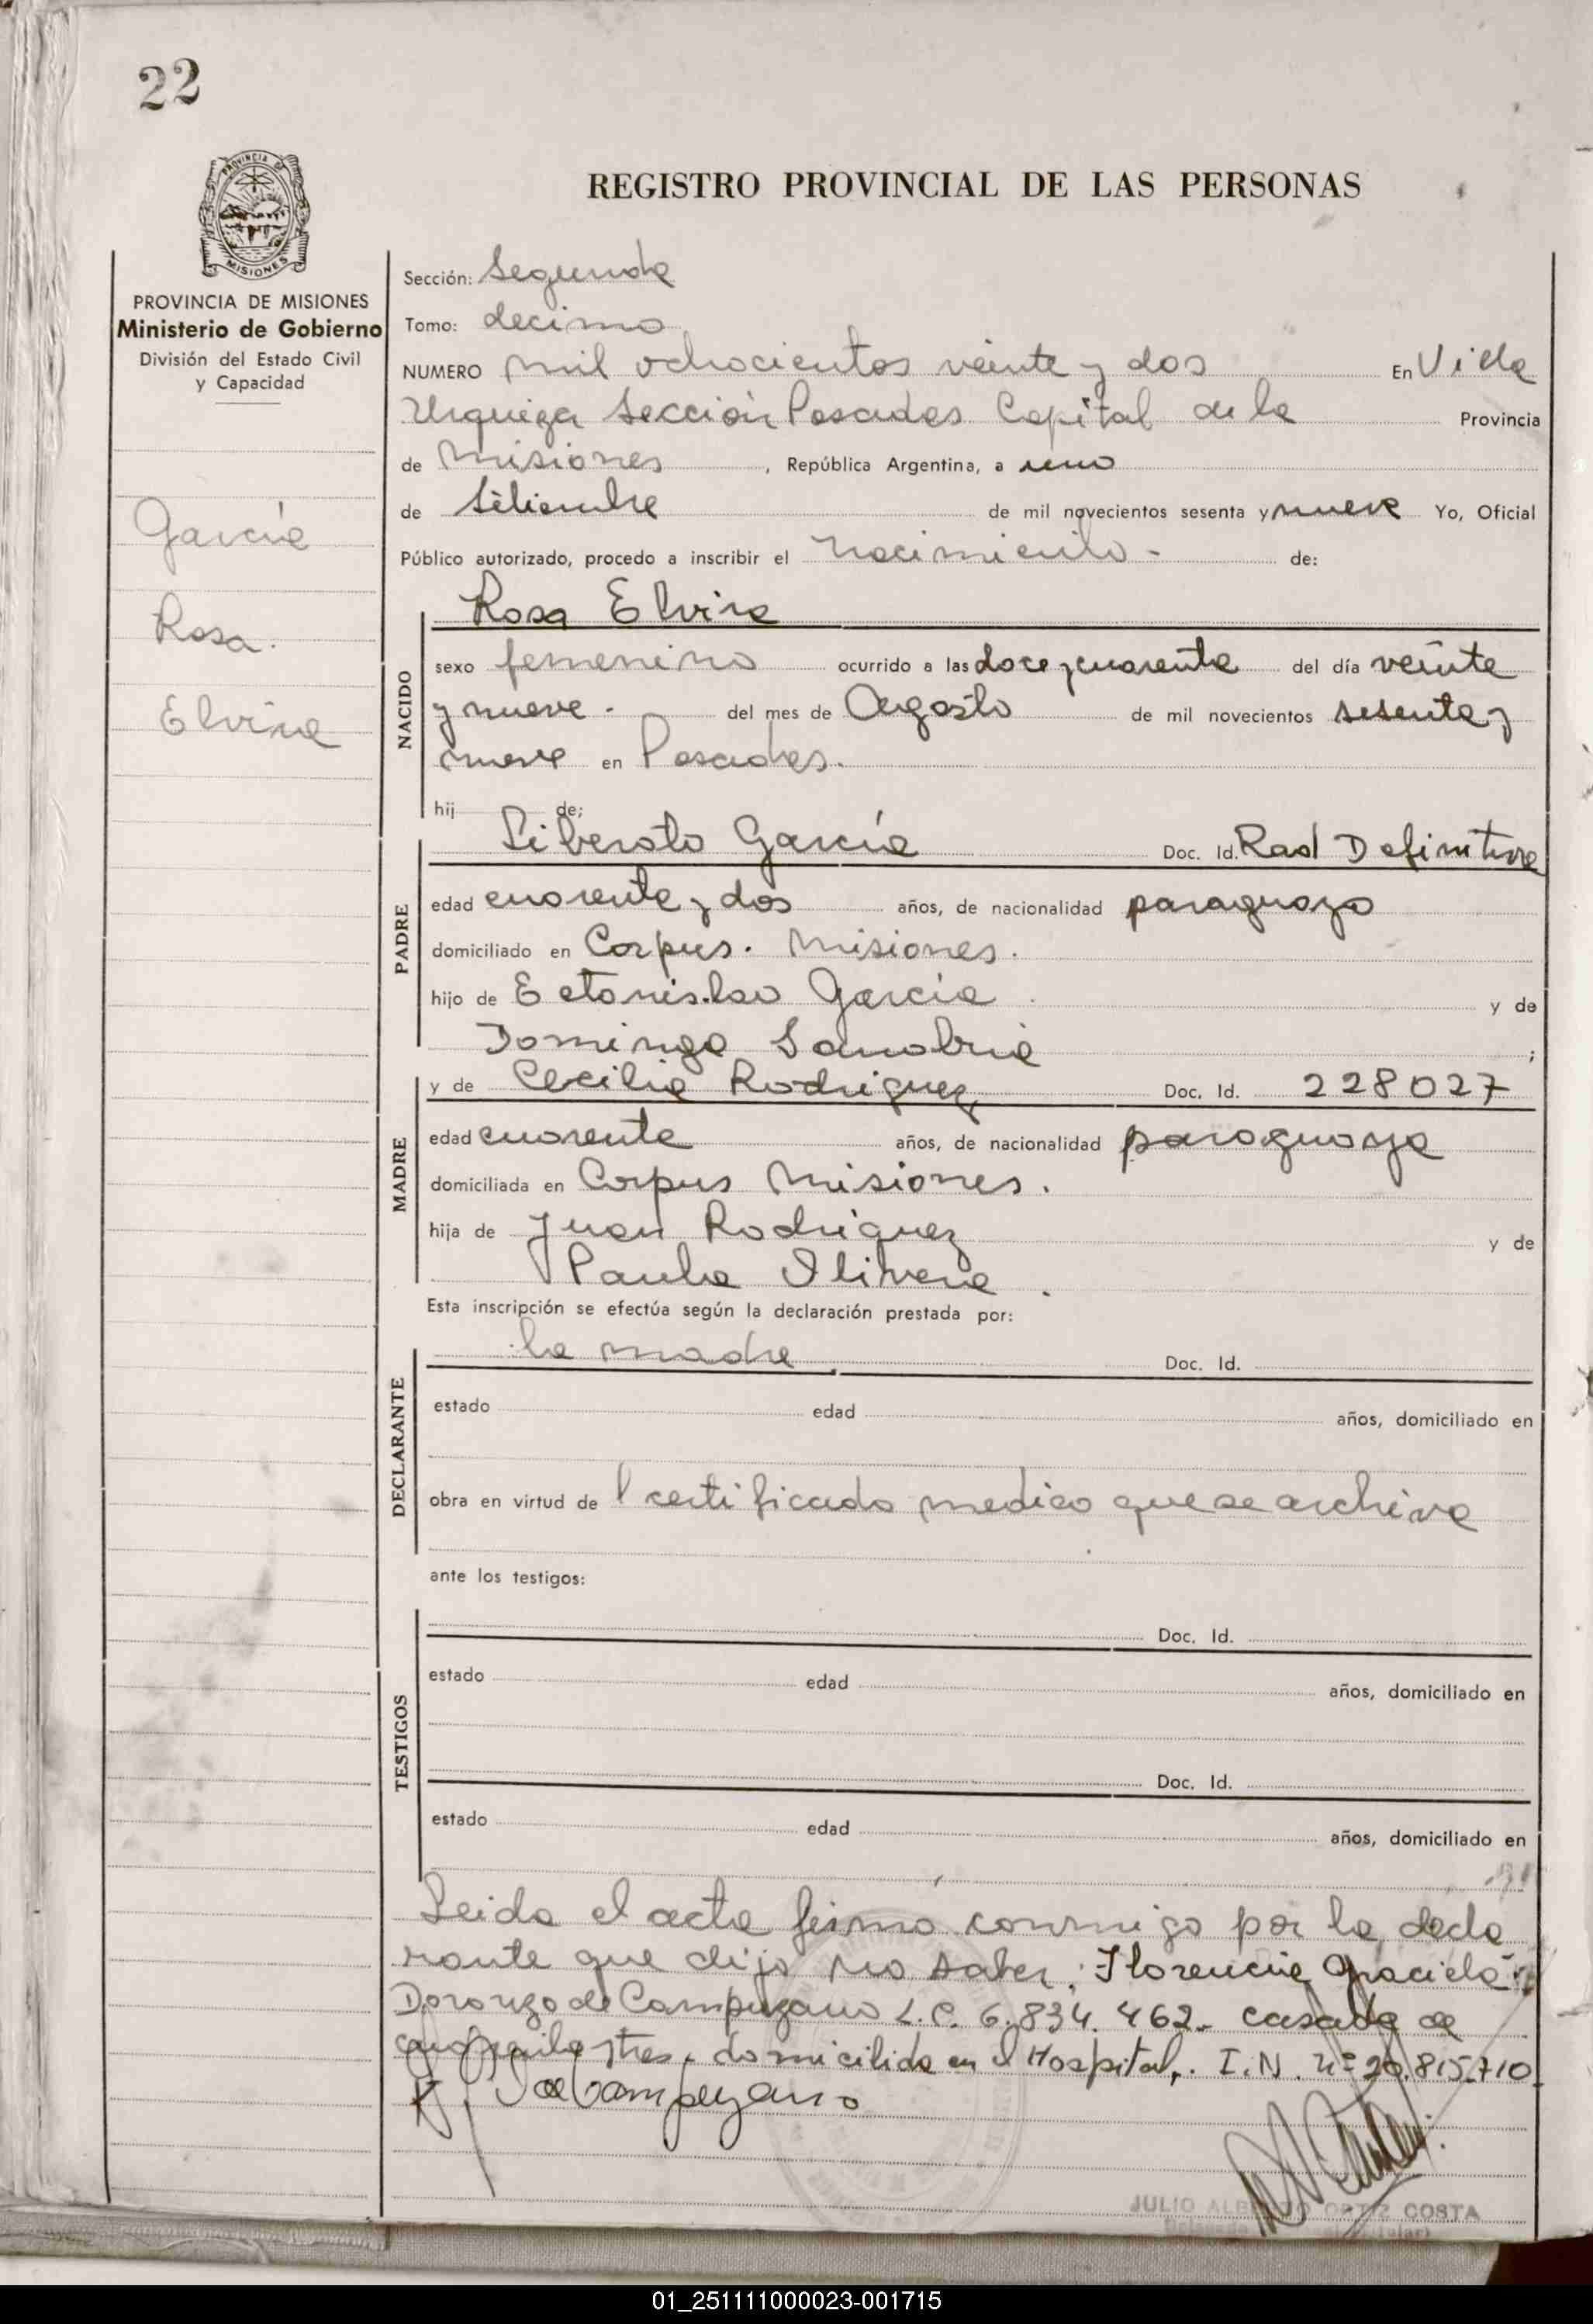 22
PROVINCIA DE
MISIONES
REGISTRO PROVINCIAL DE LAS PERSONAS
PROVINCIA DE MISIONES
Ministerio de Gobierno
División del Estado Civil
y Capacidad
García
Rosa.
Elvira
Sección: Segunda
Tomo: decimo
NUMERO mil ochocientos veinte y dos En Villa
Urquiza Sección Posadas Capital de la Provincia
de Misiones, República Argentina, a uno
de Setiembre de mil novecientos sesenta y nueve Yo, Oficial
Público autorizado, procedo a inscribir el nacimiento - de:
Rosa Elvira
NACIDO
sexo femenino ocurrido a las doce y cuarenta del día veinte
y nueve - del mes de Agosto de mil novecientos sesenta y
nueve en Posadas.
hij de;
PADRE
Liberato García Doc. Id. Rad Definitiva
edad cuarenta y dos años, de nacionalidad paraguayo
domiciliado en Corpus. Misiones.
hijo de Estanislao García y de
Dominga Sanabria ;
MADRE
y de Cecilia Rodriguez Doc. Id. 228027
edad cuarenta años, de nacionalidad paraguaya
domiciliada en Corpus Misiones.
hija de Juan Rodriguez y de
Paula
Esta inscripción se efectúa según la declaración prestada por:
DECLARANTE
la madre. Doc. Id.
estado edad años, domiciliado en
obra en virtud de l certificado medico que se archiva
ante los testigos:
TESTIGOS
Doc. Id.
estado edad años, domiciliado en
Doc. Id.
estado edad años, domiciliado en
Leida el acta firmó conmigo por la decla
rante que dijo no saber: Florencia Graciela
de Campuzano L.C. 6.834.462- casada de
cuarenta y tres, domicilida en el Hospital,. I.N. nº 20.815.710
JULIO ALBERTO ORTIZ COSTA
01_251111000023-001715